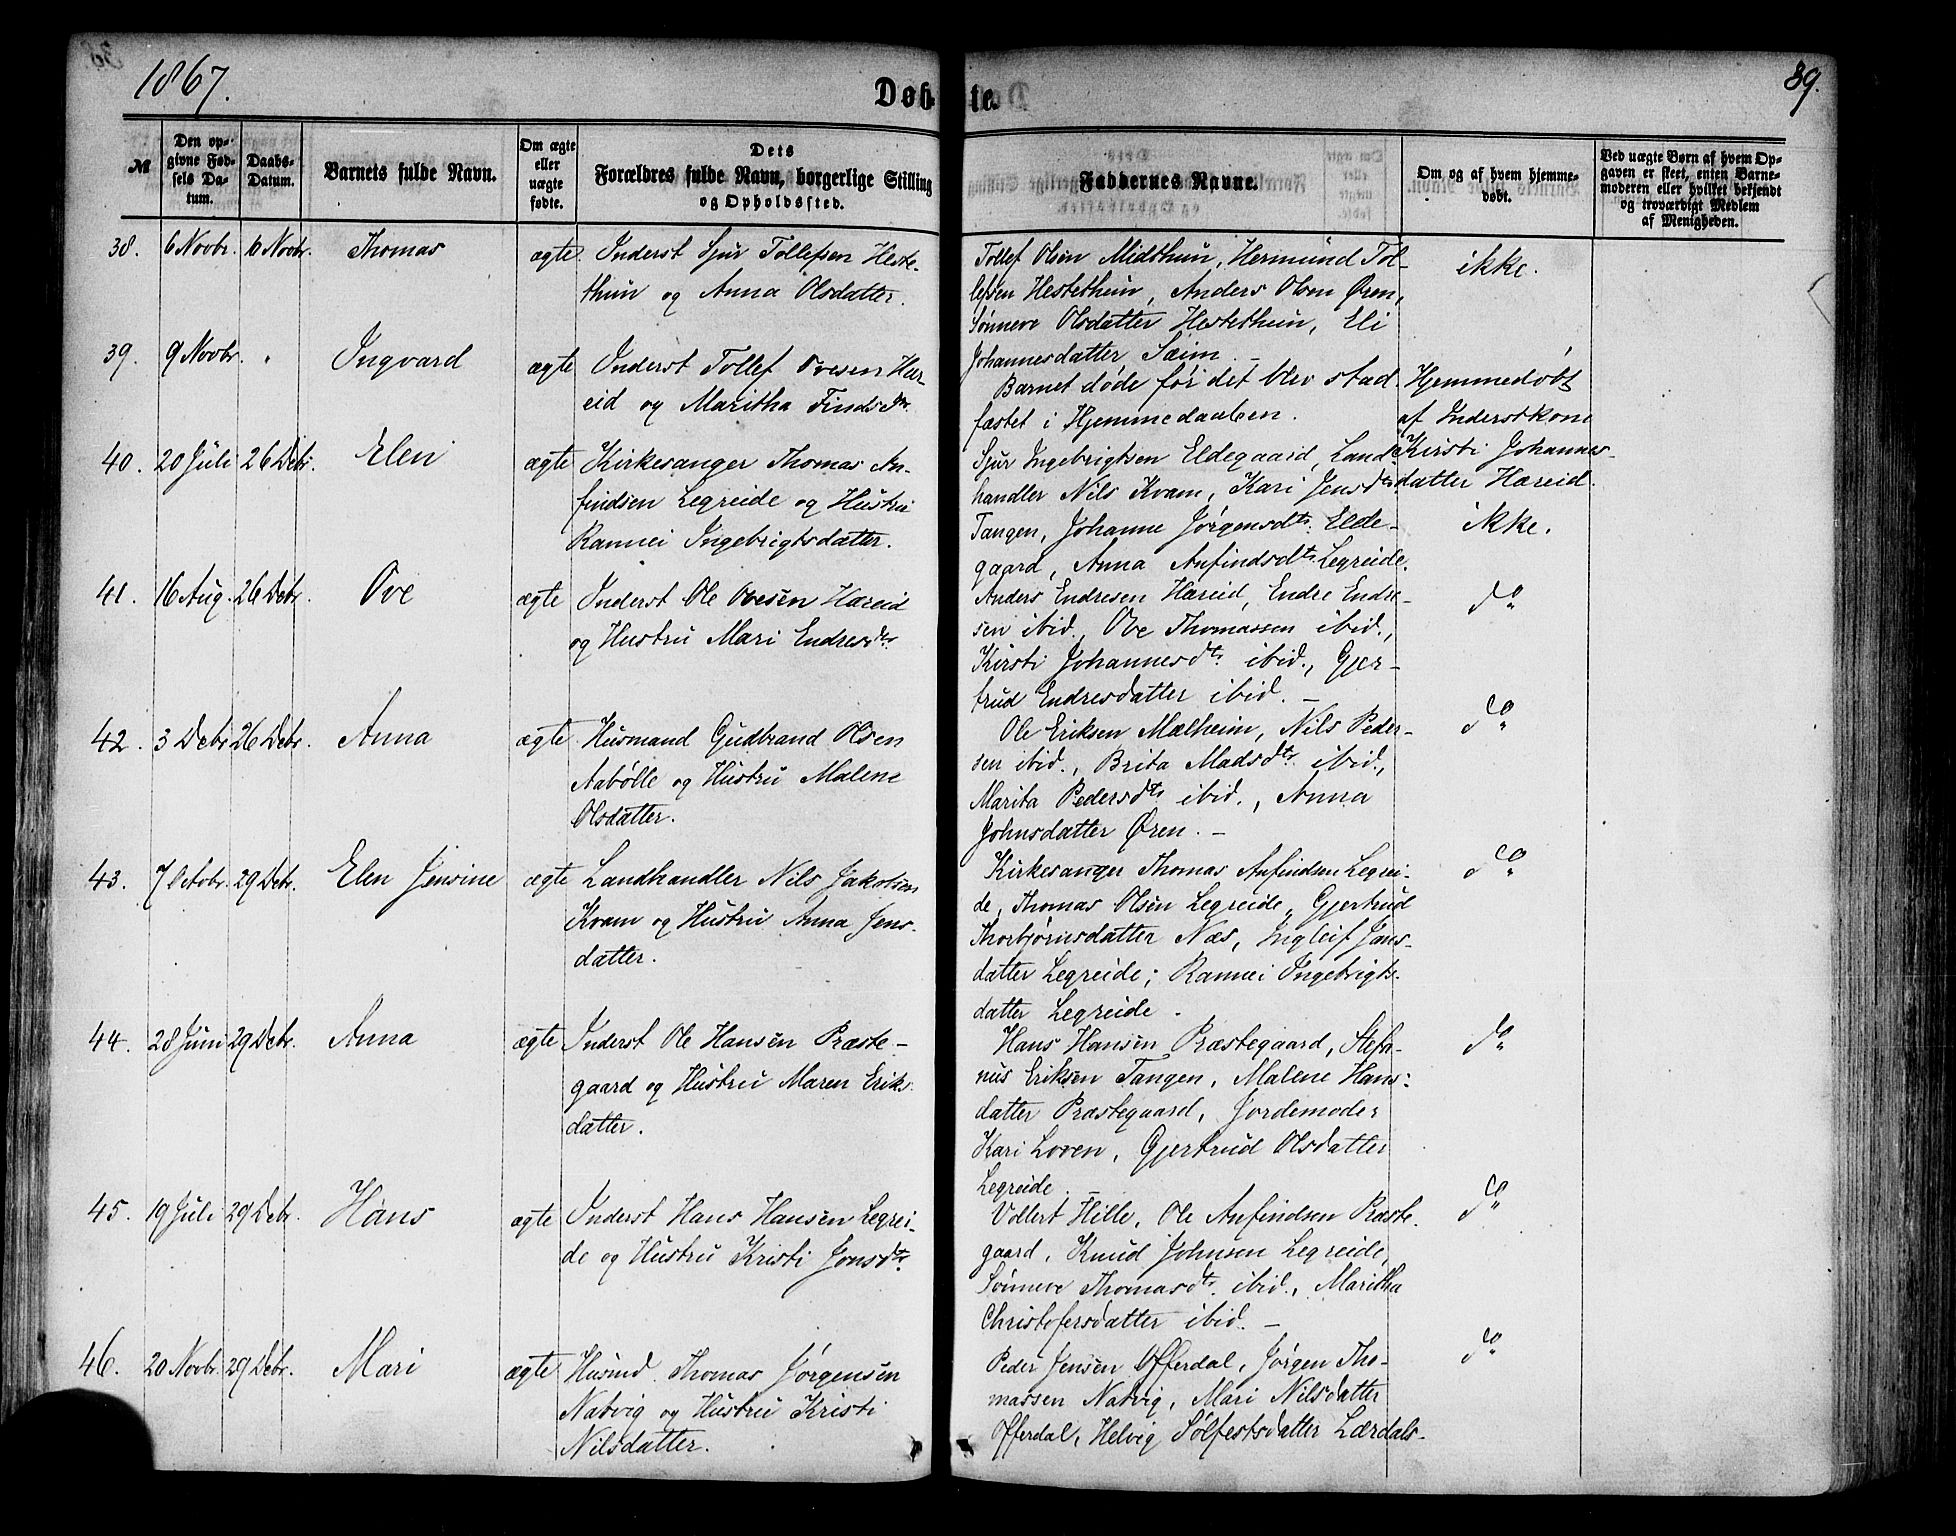 1867.
Døb
te.
89.
№
Den op-
givne Fød-
sels Da-
tum.
Daabs-
Datum.
Barnets fulde Navn.
Om ægte
eller
uægte
fødte.
Dets
Forældres fulde Navn, borgerlige Stilling
og Opholdssted.
Faddernes Navne.
Om og af hvem hjemme-
døbt.
Ved uægte Børn af hvem Op-
gaven er skeet, enten Barne-
moderen eller hvilket bekjendt
og troværdigt Medlem
af Menigheden.
38. 6 Novbr. 10 Novbr. Thomas ægte Inderst Sjur Tollefsen Heste-
thun og Anna Olsdatter.
Tollef Olsen Midthun, Hermund Tol-
lefsen Hestethun, Anders Olsen Øren,
Sønneve Olsdatter Hestethun, Eli
Johannesdatter Sæim. –
ikke.
39. 9 Novbr. " Ingvard ægte Inderst Tollef Ovesen Hæ-
reid og Maritha Findsdtr
Barnet døde før det blev stad
fæstet i Hjemmedaaben.
Hjemmedøbt
af Inderstkone
Kirsti Johannes-
datter Hæreid.
40. 20 Juli 26 Debr. Elen ægte Kirkesanger Thomas An-
findsen Legreide og Hustru
Rannei Ingebrigtsdatter.
Sjur Ingebrigtsen Eldegaard, Land-
handler Nils Kvam, Kari Jensdtr
Tangen, Johanne Jørgensdtr. Elde-
gaard, Anna Anfindsdtr Legreide.
ikke.
41. 16 Aug. 26 Debr. Ove ægte Inderst Ole Ovesen Hæreid
og Hustru Mari Endresdtr
Anders Endresen Hæreid, Endre Endre-
sen ibid. Ove Thomassen ibid.,
Kirsti Johannesdtr ibid., Gjer-
trud Endresdatter ibid. –
do
42. 3 Debr 26 Debr. Anna ægte Husmand Gudbrand Olsen
Aabølle og Hustru Malene
Olsdatter.
Ole Eriksen Mælheim, Nils Peder-
sen ibid., Brita Madsdtr ibid.,
Marita Pedersdtr ibid., Anna
Johnsdatter Øren. –
do
43. 7 Octobr. 29 Debr. Elen Jensine ægte Landhandler Nils Jakobsen
Kvam og Hustru Anna Jens-
datter.
Kirkesanger Thomas Anfindsen Legrei-
de, Thomas Olsen Legreide, Gjertrud
Thorbjørnsdatter Næs, Ingleif Jans-
datter Legreide; Rannei Ingebrigts-
datter Legreide.
do
44. 28 Juni 29 Debr. Anna ægte Inderst Ole Hansen Præste-
gaard og Hustru Maren Eriks-
datter.
Hans Hansen Præstegaard, Stefa-
nus Eriksen Tangen, Malene Hans-
datter Præstegaard, Jordemoder
Kari Loven, Gjertrud Olsdatter
Legreide. –
do
45. 19 Juli 29 Debr. Hans ægte Inderst Hans Hansen Legrei-
de og Hustru Kristi Jonsdtr
Vollert Hille, Ole Anfindsen Præste-
gaard, Knud Johnsen Legreide,
Sønneve Thomasdtr. ibid., Maritha
Christofersdatter ibid. –
do
46. 20 Novbr. 29 Debr. Mari ægte Husmd. Thomas Jørgensen
Natvig og Hustru Kristi
Nilsdatter.
Peder Jensen Offerdal, Jørgen Tho-
massen Natvig, Mari Nilsdatter
Offerdal, Helvig Sølfestsdatter Lærdals-
do